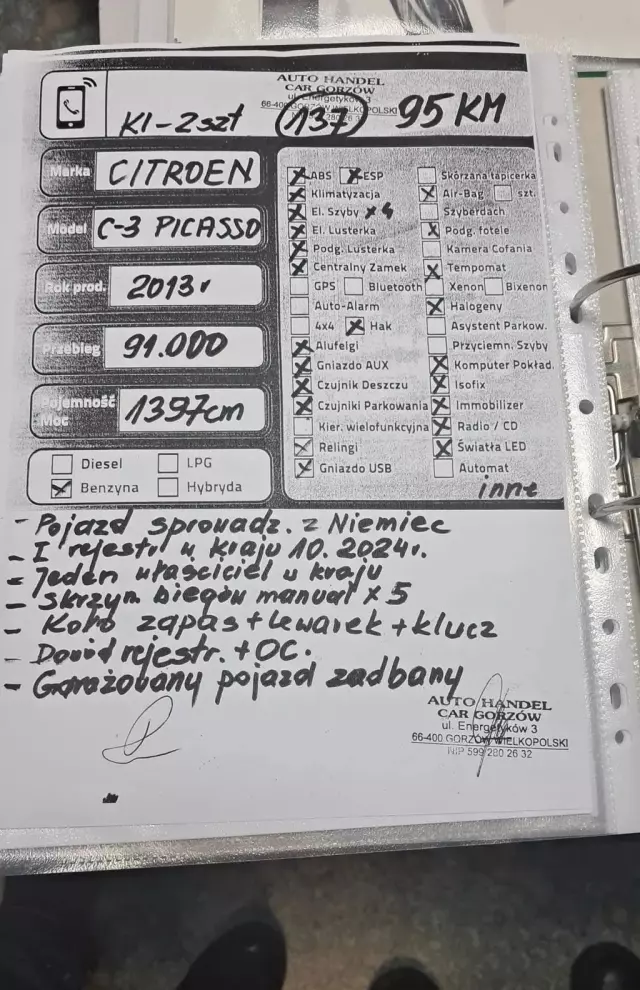 AUTO HANDEL
CAR GORZÓW
ul. Energetyków 3
66-400 GORZÓW WIELKOPOLSKI
KI-2szt 137 95 KM
Marka CITROEN
Model C-3 PICASSO
Rok prod. 2013r
Przebieg 91.000
Pojemność Moc 1397cm
Diesel LPG
Benzyna Hybryda
ABS ESP
Klimatyzacja
El. Szyby x4
El. Lusterka
Podg. Lusterka
Centralny Zamek
GPS Bluetooth
Auto-Alarm
4x4 Hak
Alufelgi
Gniazdo AUX
Czujnik Deszczu
Czujniki Parkowania
Kier. wielofunkcyjna
Relingi
Gniazdo USB
Skórzana tapicerka
Air-Bag szt.
Szyberdach
Podg. fotele
Kamera Cofania
Tempomat
Xenon Bixenon
Halogeny
Asystent Parkow.
Przyciemn. Szyby
Komputer Pokład.
Isofix
Immobilizer
Radio / CD
Światła LED
Automat
inne
- Pojazd sprowadz. z Niemiec
- I rejestr w kraju 10. 2024r.
- Jeden właściciel w kraju
- Skrzyn. biegów manual x 5
- Koło zapas + lewarek + klucz
- Dowód rejestr. + OC.
- Garażowany pojazd zadbany
AUTO HANDEL
CAR GORZÓW
ul. Energetyków 3
66-400 GORZÓW WIELKOPOLSKI
NIP 599 280 26 32